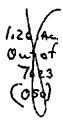 1.26 Ac.
Out of
7623
(050)